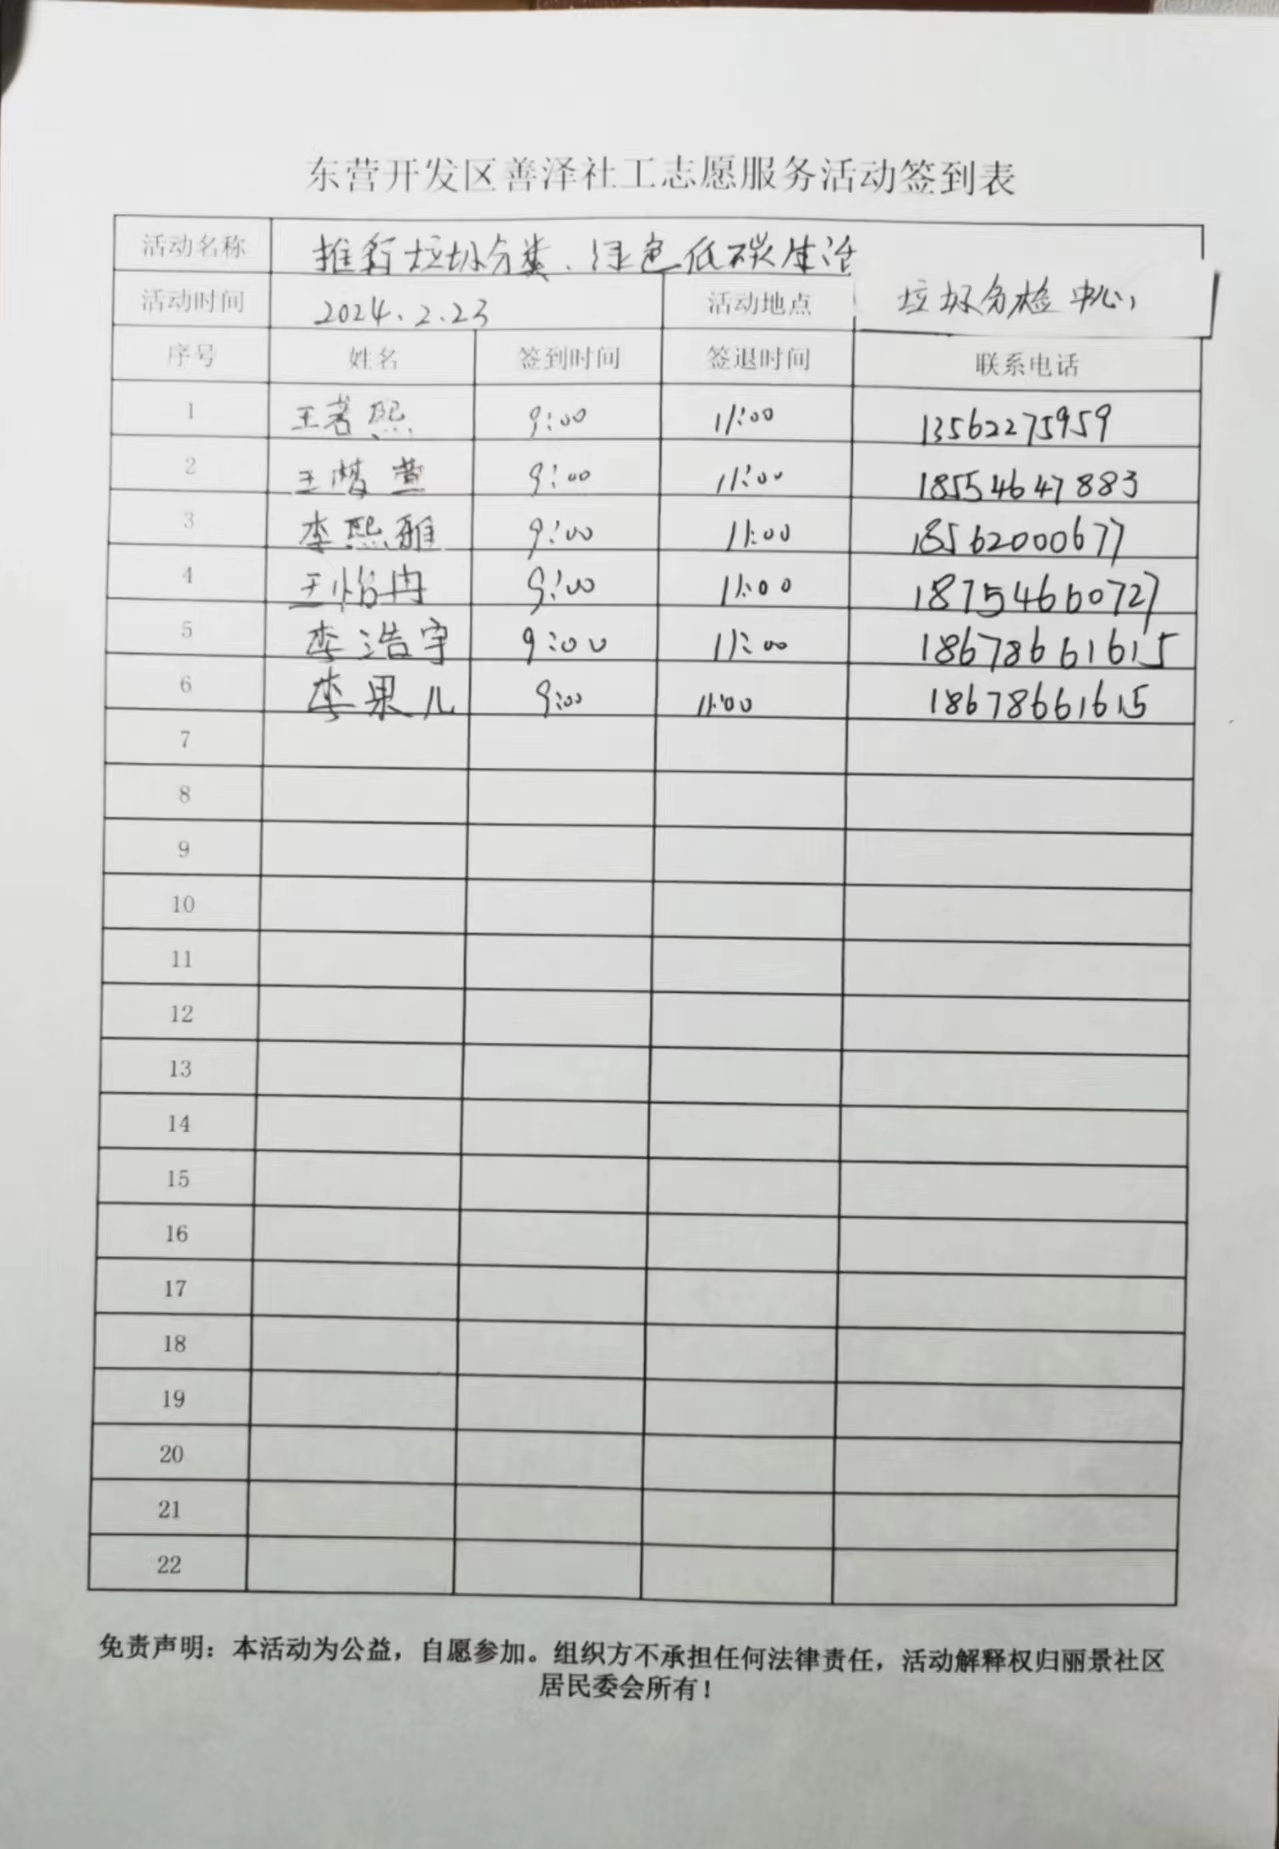 东营开发区善泽社工志愿服务活动签到表
活动名称 推行垃圾分类、绿色低碳生活
活动时间 2024.2.23 活动地点 垃圾分检中心,
序号 姓名 签到时间 签退时间 联系电话
1 王茗熙 9:00 11:00 13562275959
2 王梦萱 9:00 11:00 18554647883
3 李熙雅 9:00 11:00 18562000677
4 王怡冉 9:00 11:00 18754660727
5 李浩宇 9:00 11:00 18678661615
6 李果儿 9:00 11:00 18678661615
7
8
9
10
11
12
13
14
15
16
17
18
19
20
21
22
免责声明：本活动为公益，自愿参加。组织方不承担任何法律责任，活动解释权归丽景社区
居民委会所有！